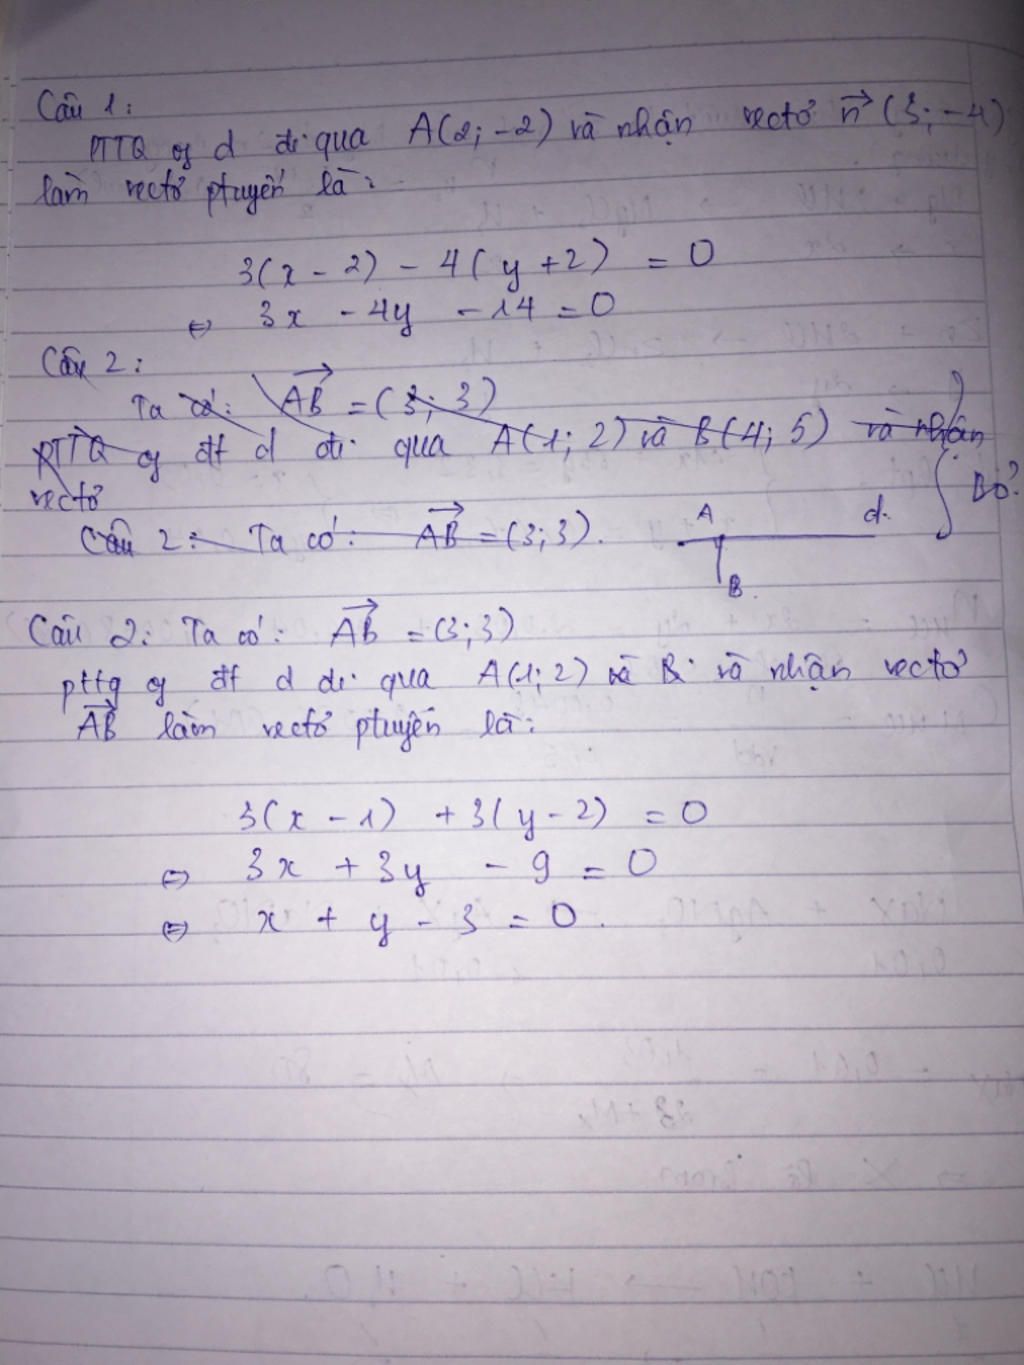 Câu 1:
PTTQ of d đi qua A(2; -2) và nhận vectơ n→ (3; -4)
làm vectơ ptuyến là:
3(x - 2) - 4(y + 2) = 0
⇔ 3x - 4y - 14 = 0
Câu 2:
Ta có: AB→ = (3; 3)
PTTQ of đt d đi qua A(1; 2) và B(4; 5) và nhận
vectơ
Bỏ.
Câu 2: Ta có: AB→ = (3; 3).
A d.
B.
Câu 2: Ta có: AB→ = (3; 3)
pttq of đt d đi qua A(1; 2) và B và nhận vectơ
AB→ làm vectơ ptuyến là:
3(x - 1) + 3(y - 2) = 0
⇔ 3x + 3y - 9 = 0
⇔ x + y - 3 = 0.